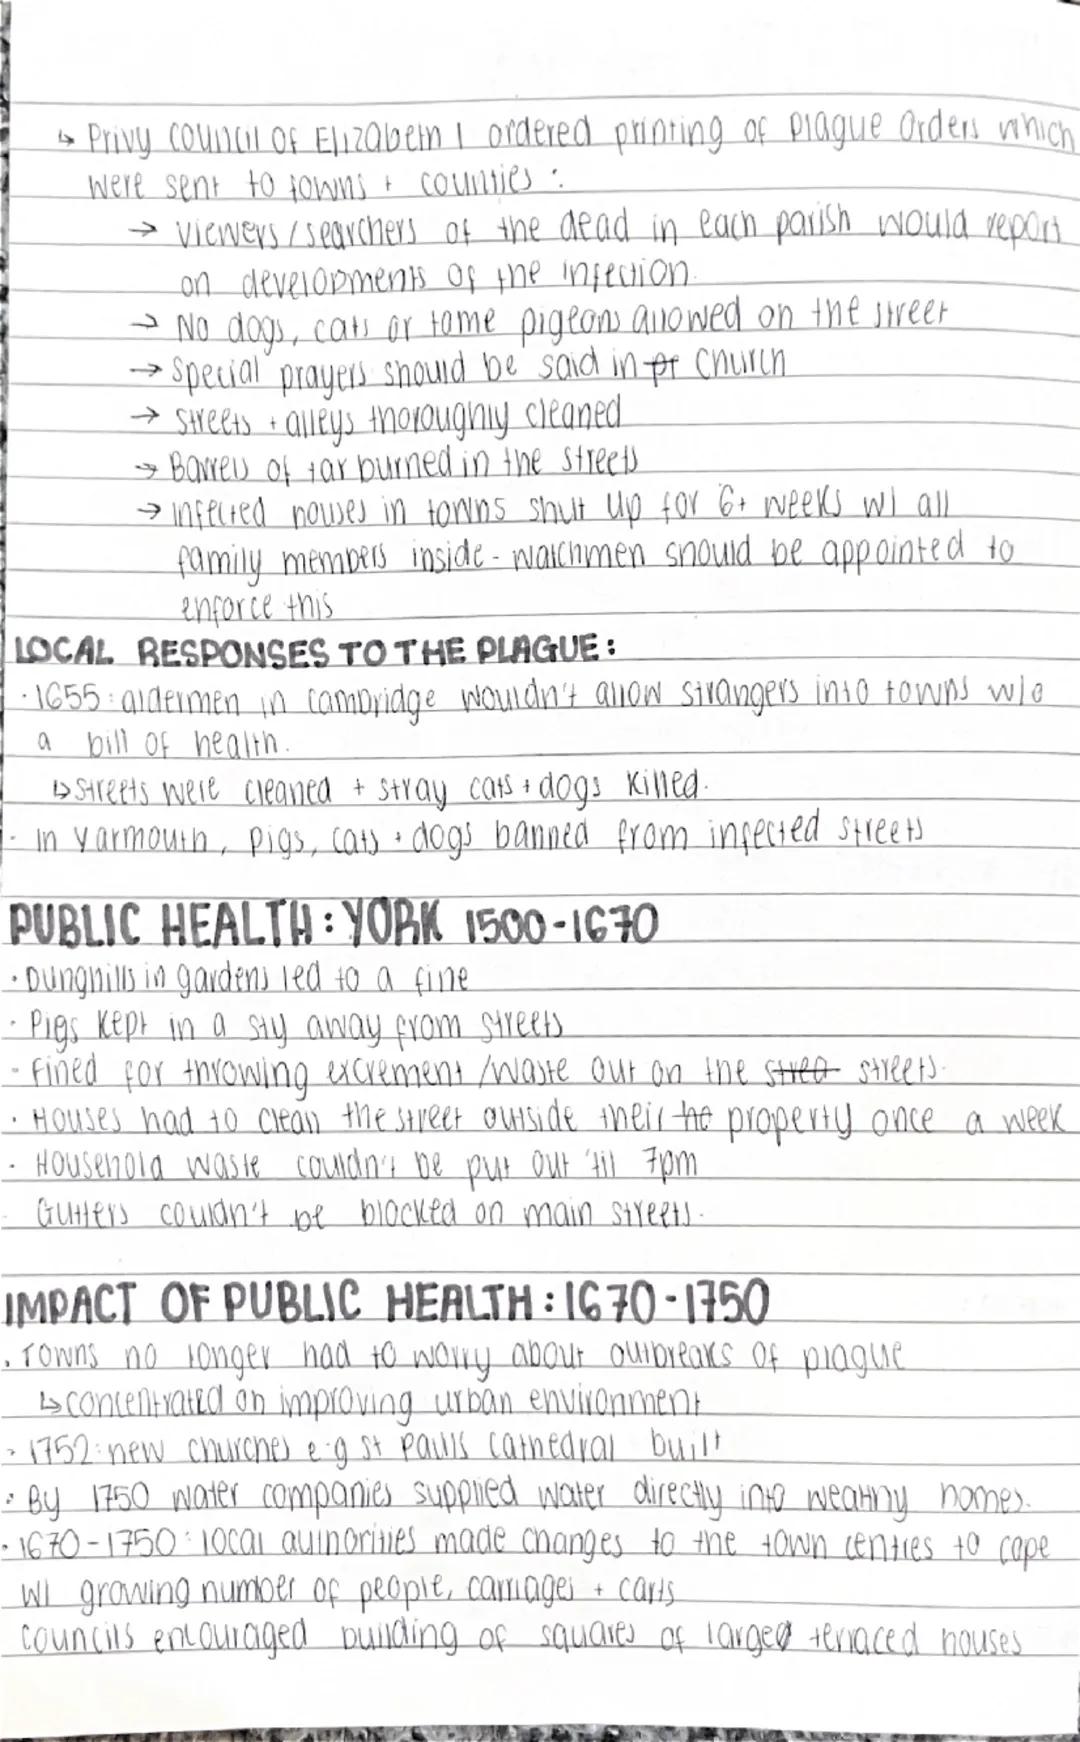 ↳ Privy council of Elizabeth I ordered printing of Plague Orders which
were sent to towns + counties :
→ viewers / searchers of the dead in each parish would report
on developments of the infection.
→ No dogs, cats or tame pigeons allowed on the street
→ Special prayers should be said in pr church
→ Streets + alleys thoroughly cleaned
→ Barrels of tar burned in the streets
→ infected houses in towns shut up for 6+ weeks w/ all
family members inside - watchmen should be appointed to
enforce this
LOCAL RESPONSES TO THE PLAGUE :
· 1655 : aldermen in Cambridge wouldn't allow strangers into towns w/o
a bill of health.
↳ Streets were cleaned + stray cats + dogs killed.
- In Yarmouth, pigs, cats + dogs banned from infected streets
PUBLIC HEALTH : YORK 1500-1670
· Dunghills in gardens led to a fine
· Pigs kept in a sty away from streets
- Fined for throwing excrement / waste out on the stree streets.
· Houses had to clean the street outside their ho property once a week
· Household waste couldn't be put out 'til 7pm
- Gutters couldn't be blocked on main streets.
IMPACT OF PUBLIC HEALTH : 1670-1750
· Towns no longer had to worry about outbreaks of plague
↳ concentrated on improving urban environment
· 1752 : new churches e.g St Paul's Cathedral built
· By 1750 water companies supplied water directly into wealthy homes.
· 1670-1750 : local authorities made changes to the town centres to cope
w/ growing number of people, carriages + carts
Councils encouraged building of squares of large terraced houses